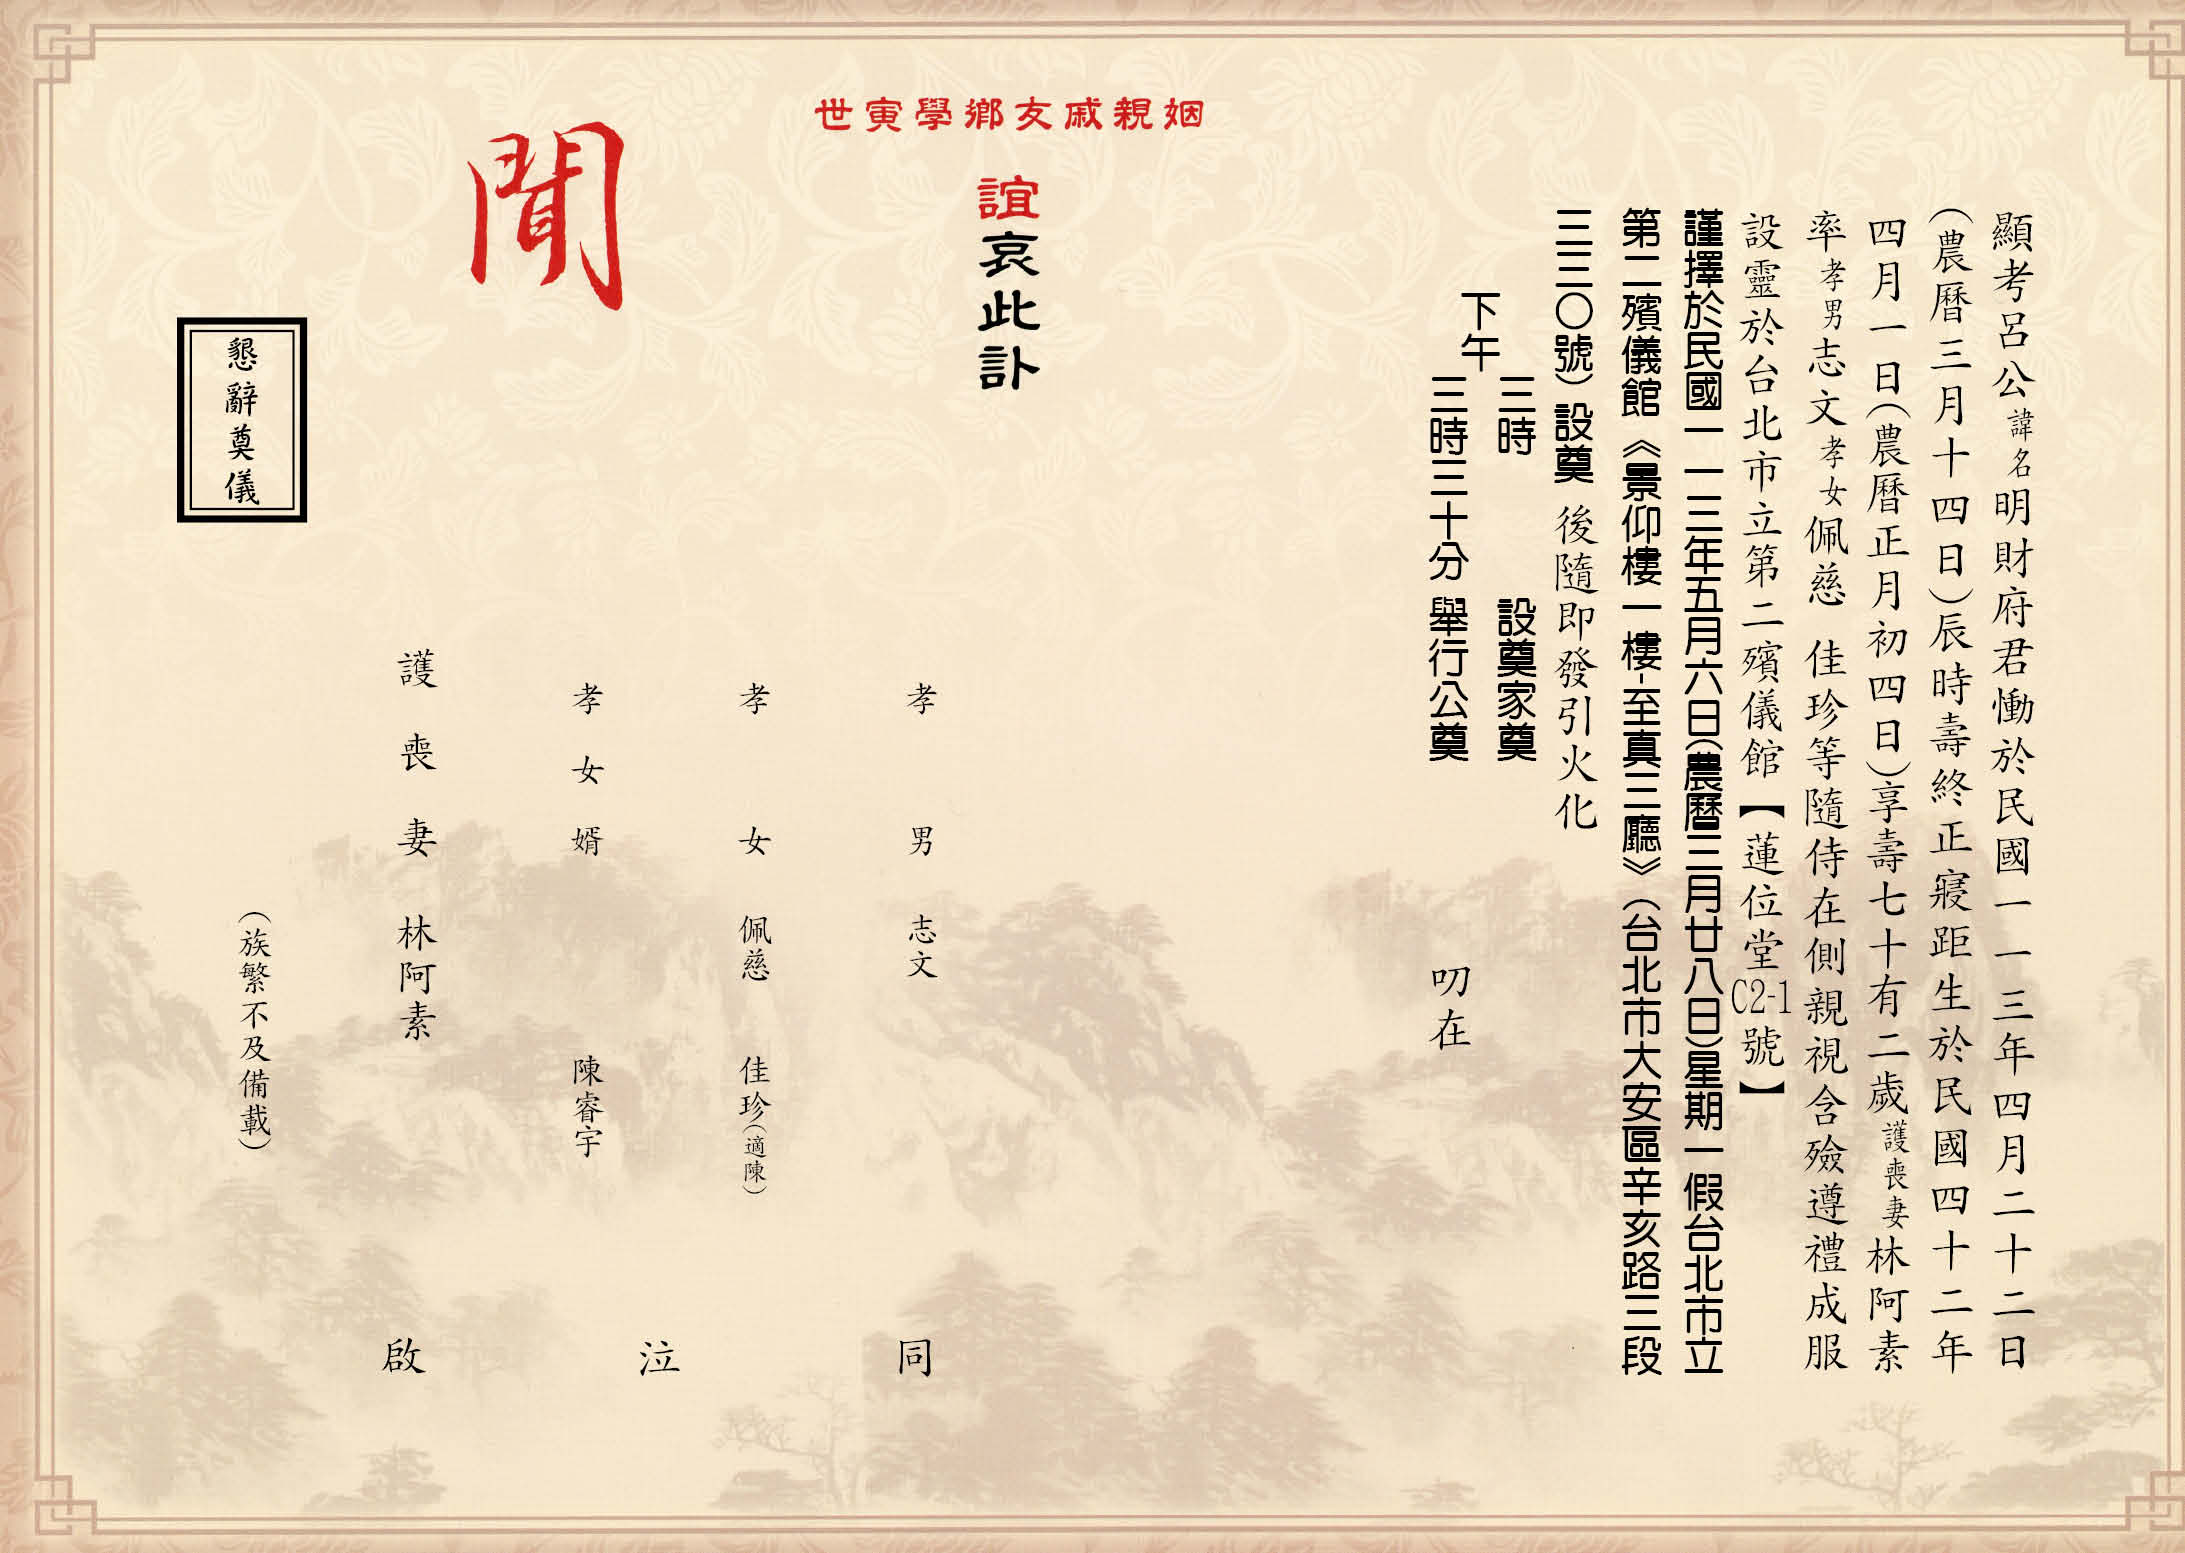 顯考呂公諱名明財府君慟於民國一一三年四月二十二日
(農曆三月十四日)辰時壽終正寢距生於民國四十二年
四月一日(農曆正月初四日)享壽七十有二歲護喪妻林阿素
率孝男志文孝女佩慈 佳珍等隨侍在側親視含殮遵禮成服
設靈於台北市立第二殯儀館【蓮位堂C2-1號】
謹擇於民國一一三年五月六日(農曆三月廿八日)星期一假台北市立
第二殯儀館《景仰樓一樓-至真三廳》(台北市大安區辛亥路三段
三三〇號)設奠 後隨即發引火化
下午
三時 設奠家奠
三時三十分 舉行公奠
叨在
姻親戚友鄉學寅世
誼哀此訃
聞
孝男 志文
孝女 佩慈 佳珍(適陳)
孝女婿 陳睿宇
護喪妻 林阿素
同泣啟
(族繁不及備載)
懇辭奠儀